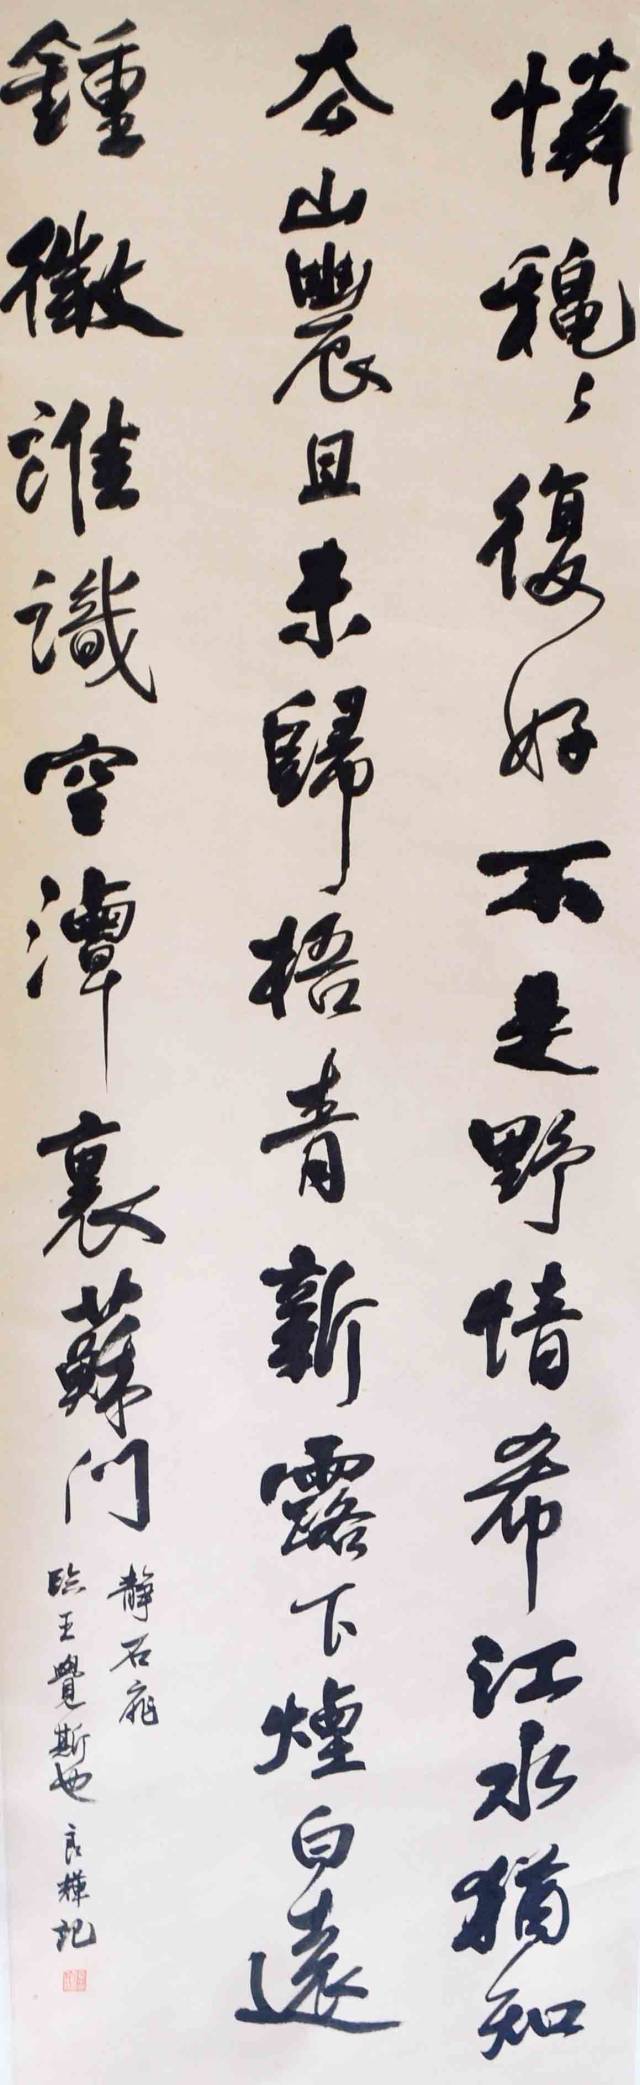 憐穐〻復好不是野情希江水猶知
太山農且未歸梧青新露下煙白遠
鍾微誰識空潭裏蘇門
靜石庵
臨王覺斯也良輝記